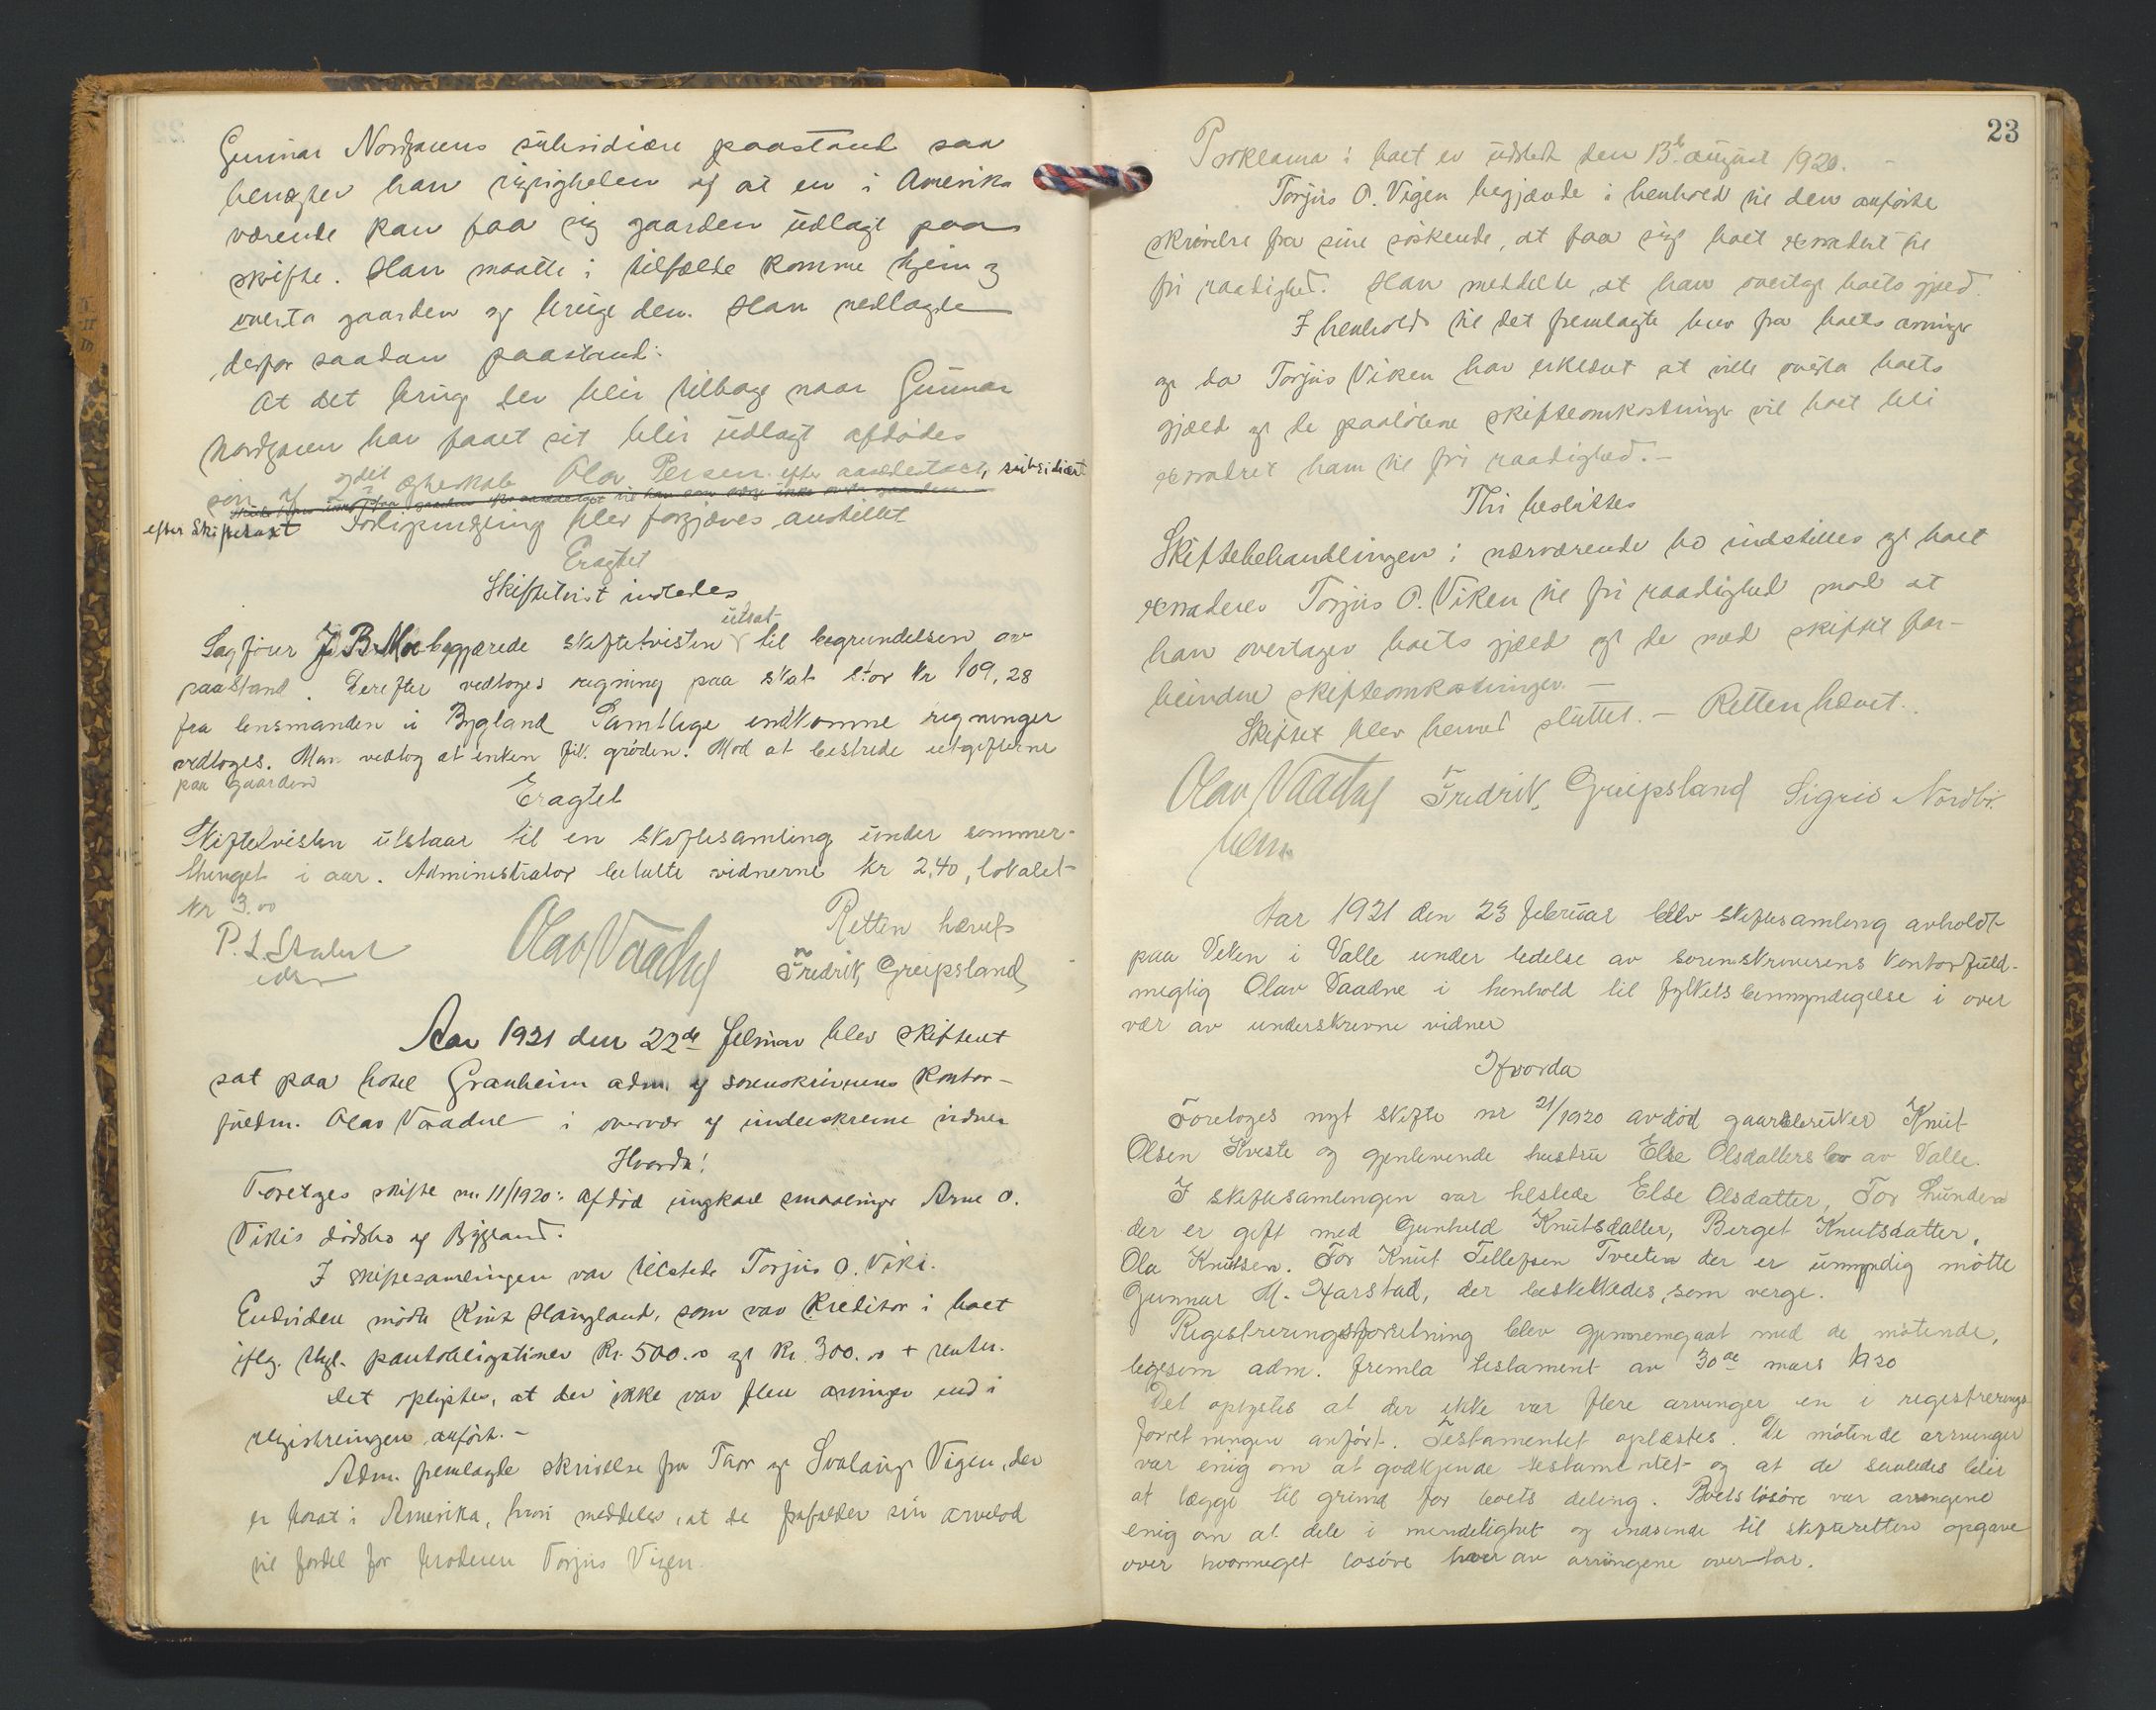 Gunnar Nordgarens subsidiære paastand saa
benegter han rigtigheten af at en i Amerika
værende kan faa sig gaarden udlagt paa
skifte. Han maatte i tilfælde komme hjem og
overta gaarden og bruge den. Han nedlagde
derfor saadan paastand:
At det brug der blir tilbage naar Gunnar
Nordgaren har faaet sit blir udlagt afdødes
søn af egteskab Ola Persen efter aasædestaxt, subsidiært
efter Skiftetaxt Forligsmægling blev forgjæves anstillet
Eragtet
Skiftetvist indledes
utsat
Sagfører J. B. Moe begjærede skiftetvisten til begrundelsen av
paastand. Derefter vedtoges regning paa skat stor kr 109,28
fra lensmanden i Bygland Samtlige indkomne regninger
vedtoges. Man vedtog at enken fik grøden. Mod at bestride utgifterne
paa gaarden
Eragtet
Skiftetvisten utstaar til en skiftesamling under sommer-
thinget i aar. Administrator betalte vidnerne kr 2,40, lokalet
kr 3.00
Retten hævet
P. S. Olav Vaadne Fredrik Greipsland
Aar 1921 den 22de februar blev skifteret
sat paa hotel Granheim adm. af sorenskriverens kontor-
fuldm. Olav Vaadne i overvær af underskrevne vidner
Hvorda!
Foretoges skifte nr. 11/1920: afdød ungkarl Arne O.
Vikis dødsbo af Bygland.
I skiftesamlingen var tilstede Torjus O. Viki.
Endvidere mødte Knut Haugland, som var kreditor i boet
iflg. tingl. pantobligationer kr. 500.00 og kr. 300.00 + renter.
Det oplystes, at der ikke var flere arvinger end i
registreringen anført. -
Adm. fremlagde skrivelse fra Thor og Svalaug Vigen, der
er bosat i Amerika, hvori meddeles, at de frafalder sin arvelod
til fordel for broderen Torjus Vigen.
23
Proklama i boet er udstedt den 13de august 1920. -
Torjus O. Vigen begjærede i henhold til den anførte
skrivelse fra sine søskende, at faa sig boet extradert til
fri raadighed. Han meddelte, at han overtog boets gjæld.
I henhold til det fremlagte brev fra boets arvinger
og da Torjus Viken har erklæret at ville overta boets
gjæld og de paaløbne skifteomkostninger vil boet bli
extradret ham til fri raadighed. -
Thi besluttes
Skiftebehandlingen i nærværende bo indstilles og boet
extraderes Torjus O. Viken til fri raadighed mod at
han overtager boets gjæld og de med skiftet for-
bundne skifteomkostninger. -
Skiftet blev hermed sluttet. - Retten hævet.
Olav Vaadne Fredrik Greipsland Sigrid Nordbø
Aar 1921 den 23 februar blev skiftesamling avholdt
paa Viken i Valle under ledelse av sorenskriverens kontorfuld-
mægtig Olav Vaadne i henhold til fylkets bemyndigelse i over
vær av underskrevne vidner
Hvorda
Foretoges nyt skifte nr 21/1920 avdød gaardbruker Knut
Olsen Kveste og gjenlevende hustru Else Olsdatters bo av Valle.
I skiftesamlingen var tilstede Else Olsdatter, Tor Lunden
der er gift med Gunhild Knutsdatter, Birget Knutsdatter,
Ola Knutsen. For Knut Tellefsen Tveiten der er umyndig møtte
Gunnar M. Harstad, der beskikkedes som verge.
Registreringsforretning blev gjennemgaat med de møtende,
likesom adm. fremla testament av 30de mars 1920
Det oplystes at der ikke var flere arvinger en i registrerings
forretningen anført. Testamentet oplæstes. De møtende arvinger
var enig om at godkjende testamentet og at de saaledes blir
at lægge til grund for boets deling. Boets løsøre var arvingene
enig om at dele i mindelighet og indsende til skifteretten opgave
over hvormeget løsøre hver av arvingene overtar.